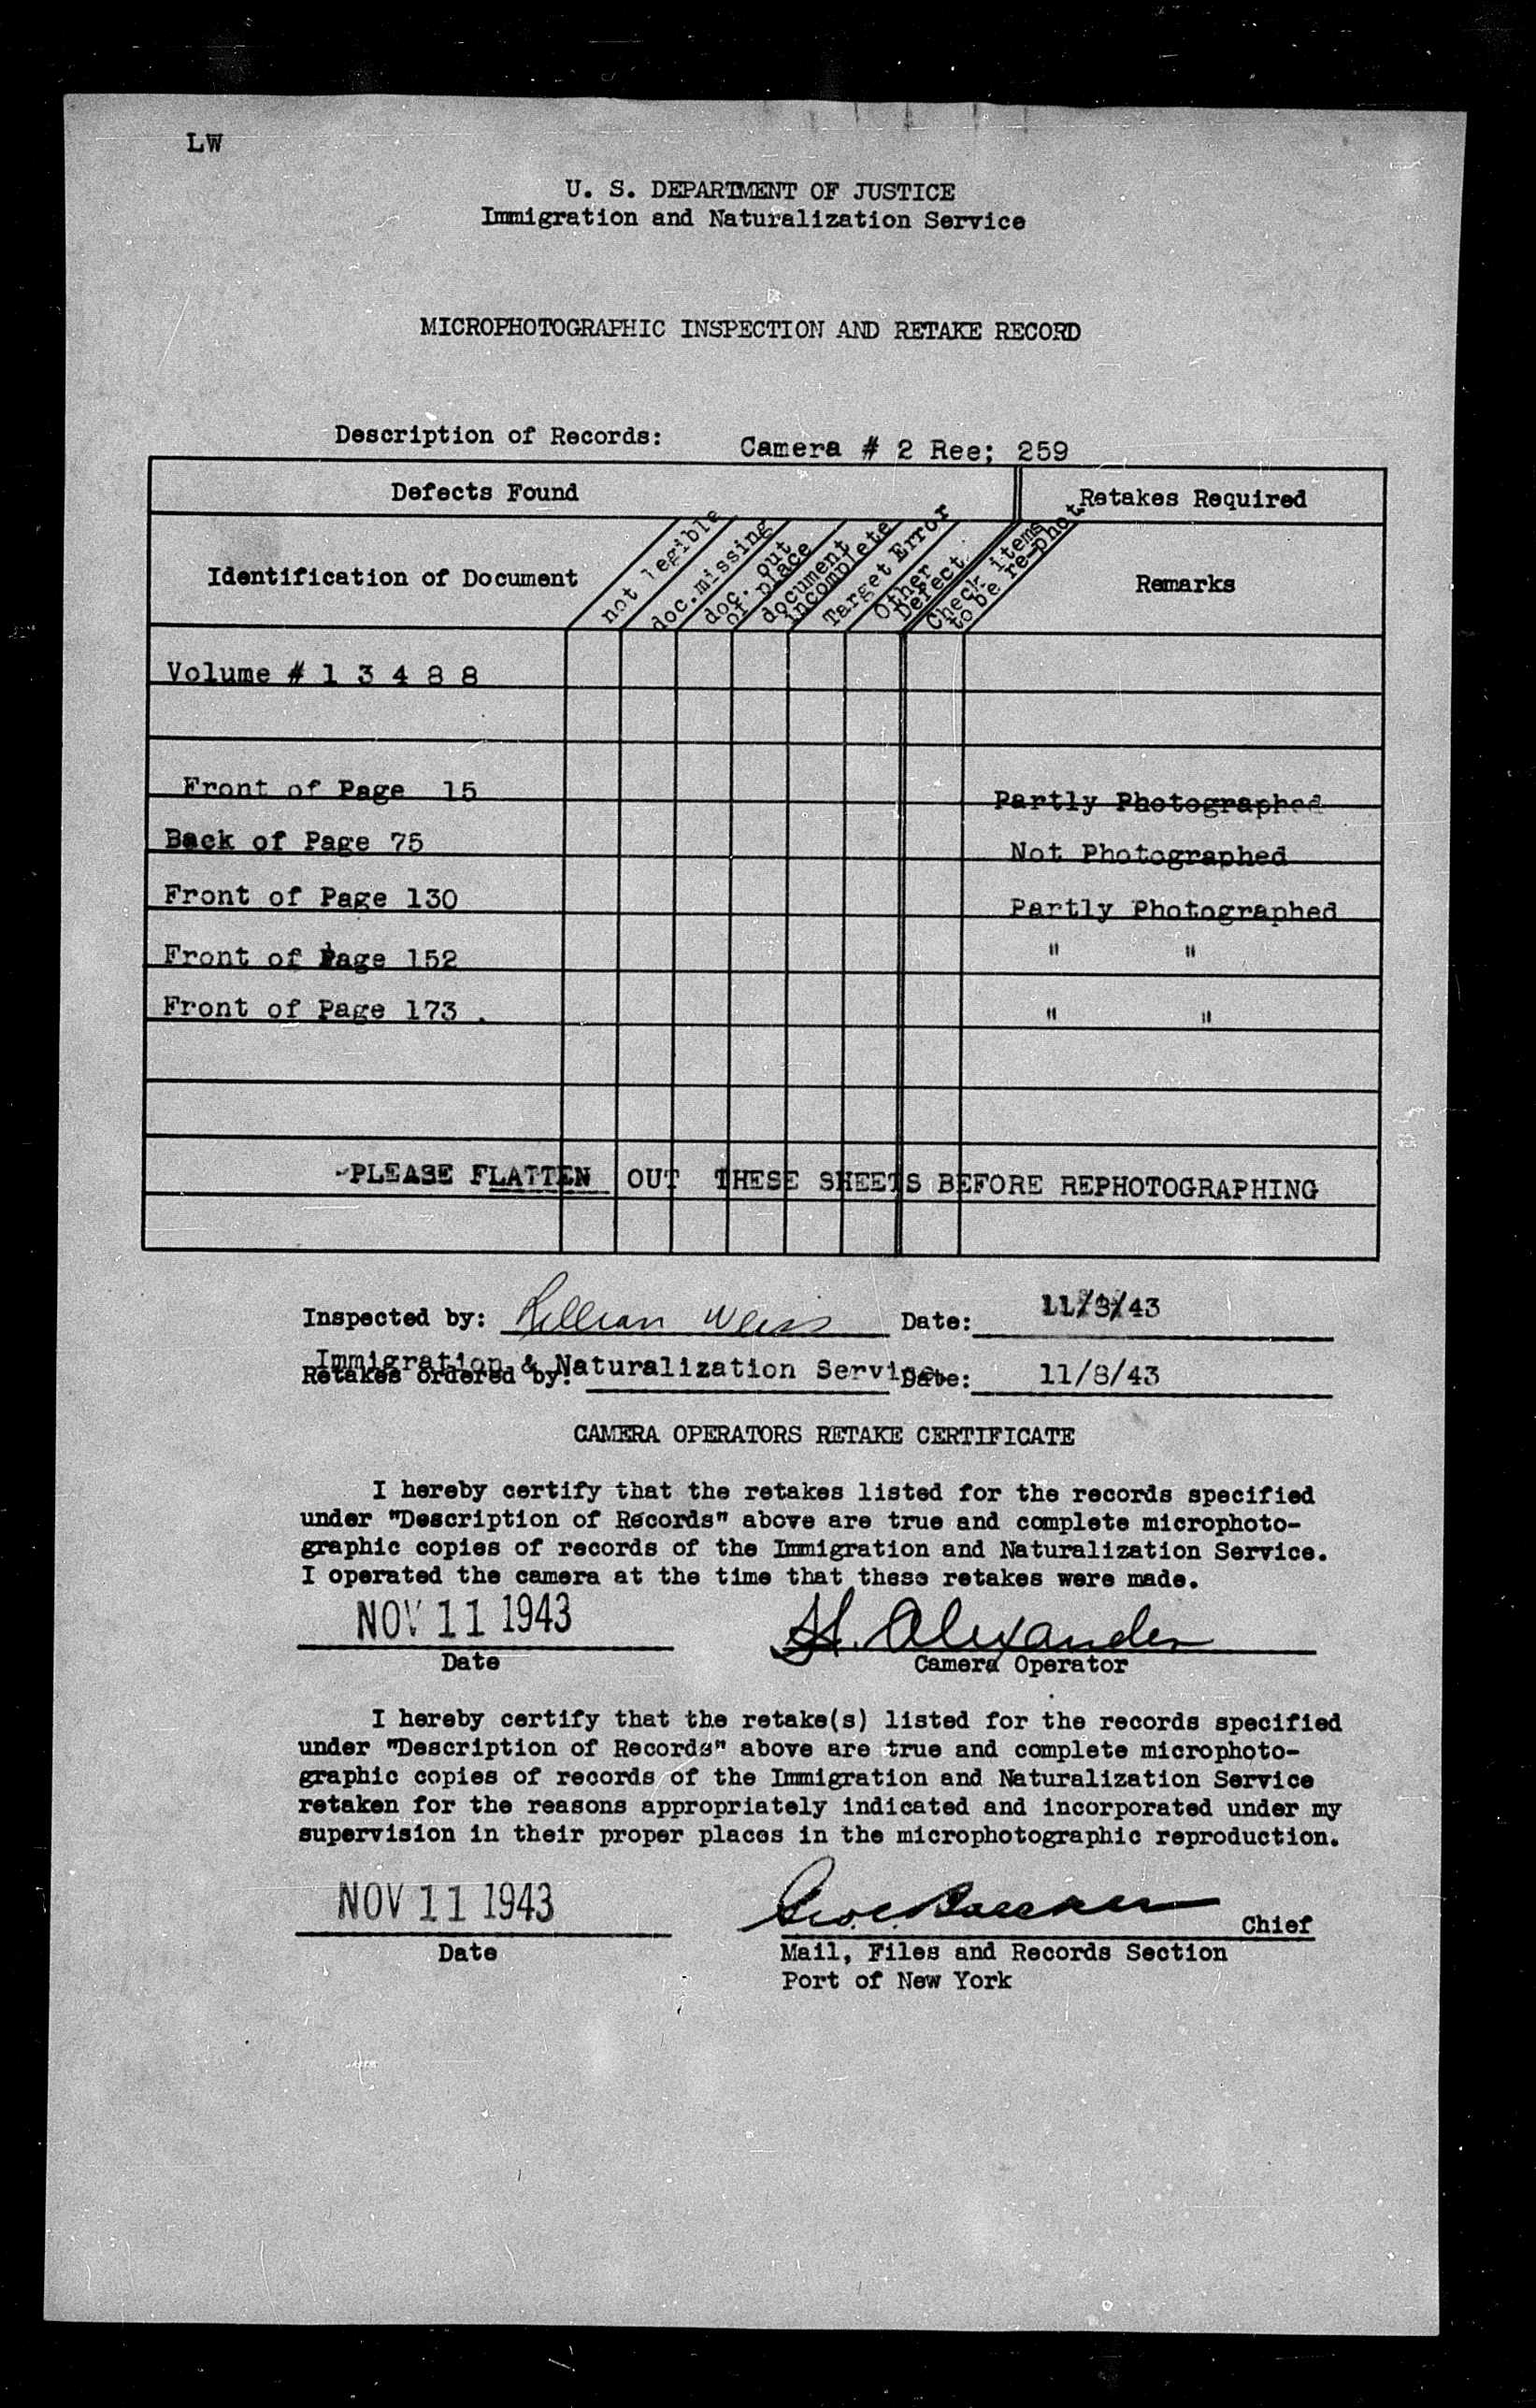 LW
U. S. DEPARTMENT OF JUSTICE
Immigration and Naturalization Service
MICROPHOTOGRAPHIC INSPECTION AND RETAKE RECORD
Description of Records: Camera # 2 Ree; 259
Defects Found Retakes Required
Identification of Document
not legible
doc.missing
doc. out of place
document incomplete
Target Error
Other Defect
Check items to be re-phot.
Remarks
Volume # 1 3 4 8 8
Front of Page 15 Partly Photographed
Back of Page 75 Not Photographed
Front of Page 130 Partly Photographed
Front of Page 152 " "
Front of Page 173 . " "
PLEASE FLATTEN OUT THESE SHEETS BEFORE REPHOTOGRAPHING
Inspected by: Lillian Weiss Date: 11/8/43
Retakes ordered by: Immigration & Naturalization Service Date: 11/8/43
CAMERA OPERATORS RETAKE CERTIFICATE
I hereby certify that the retakes listed for the records specified
under "Description of Records" above are true and complete microphoto-
graphic copies of records of the Immigration and Naturalization Service.
I operated the camera at the time that these retakes were made.
NOV 11 1943 H. Alexander
Date Camera Operator
I hereby certify that the retake(s) listed for the records specified
under "Description of Records" above are true and complete microphoto-
graphic copies of records of the Immigration and Naturalization Service
retaken for the reasons appropriately indicated and incorporated under my
supervision in their proper places in the microphotographic reproduction.
NOV 11 1943 Chief
Date Mail, Files and Records Section
Port of New York